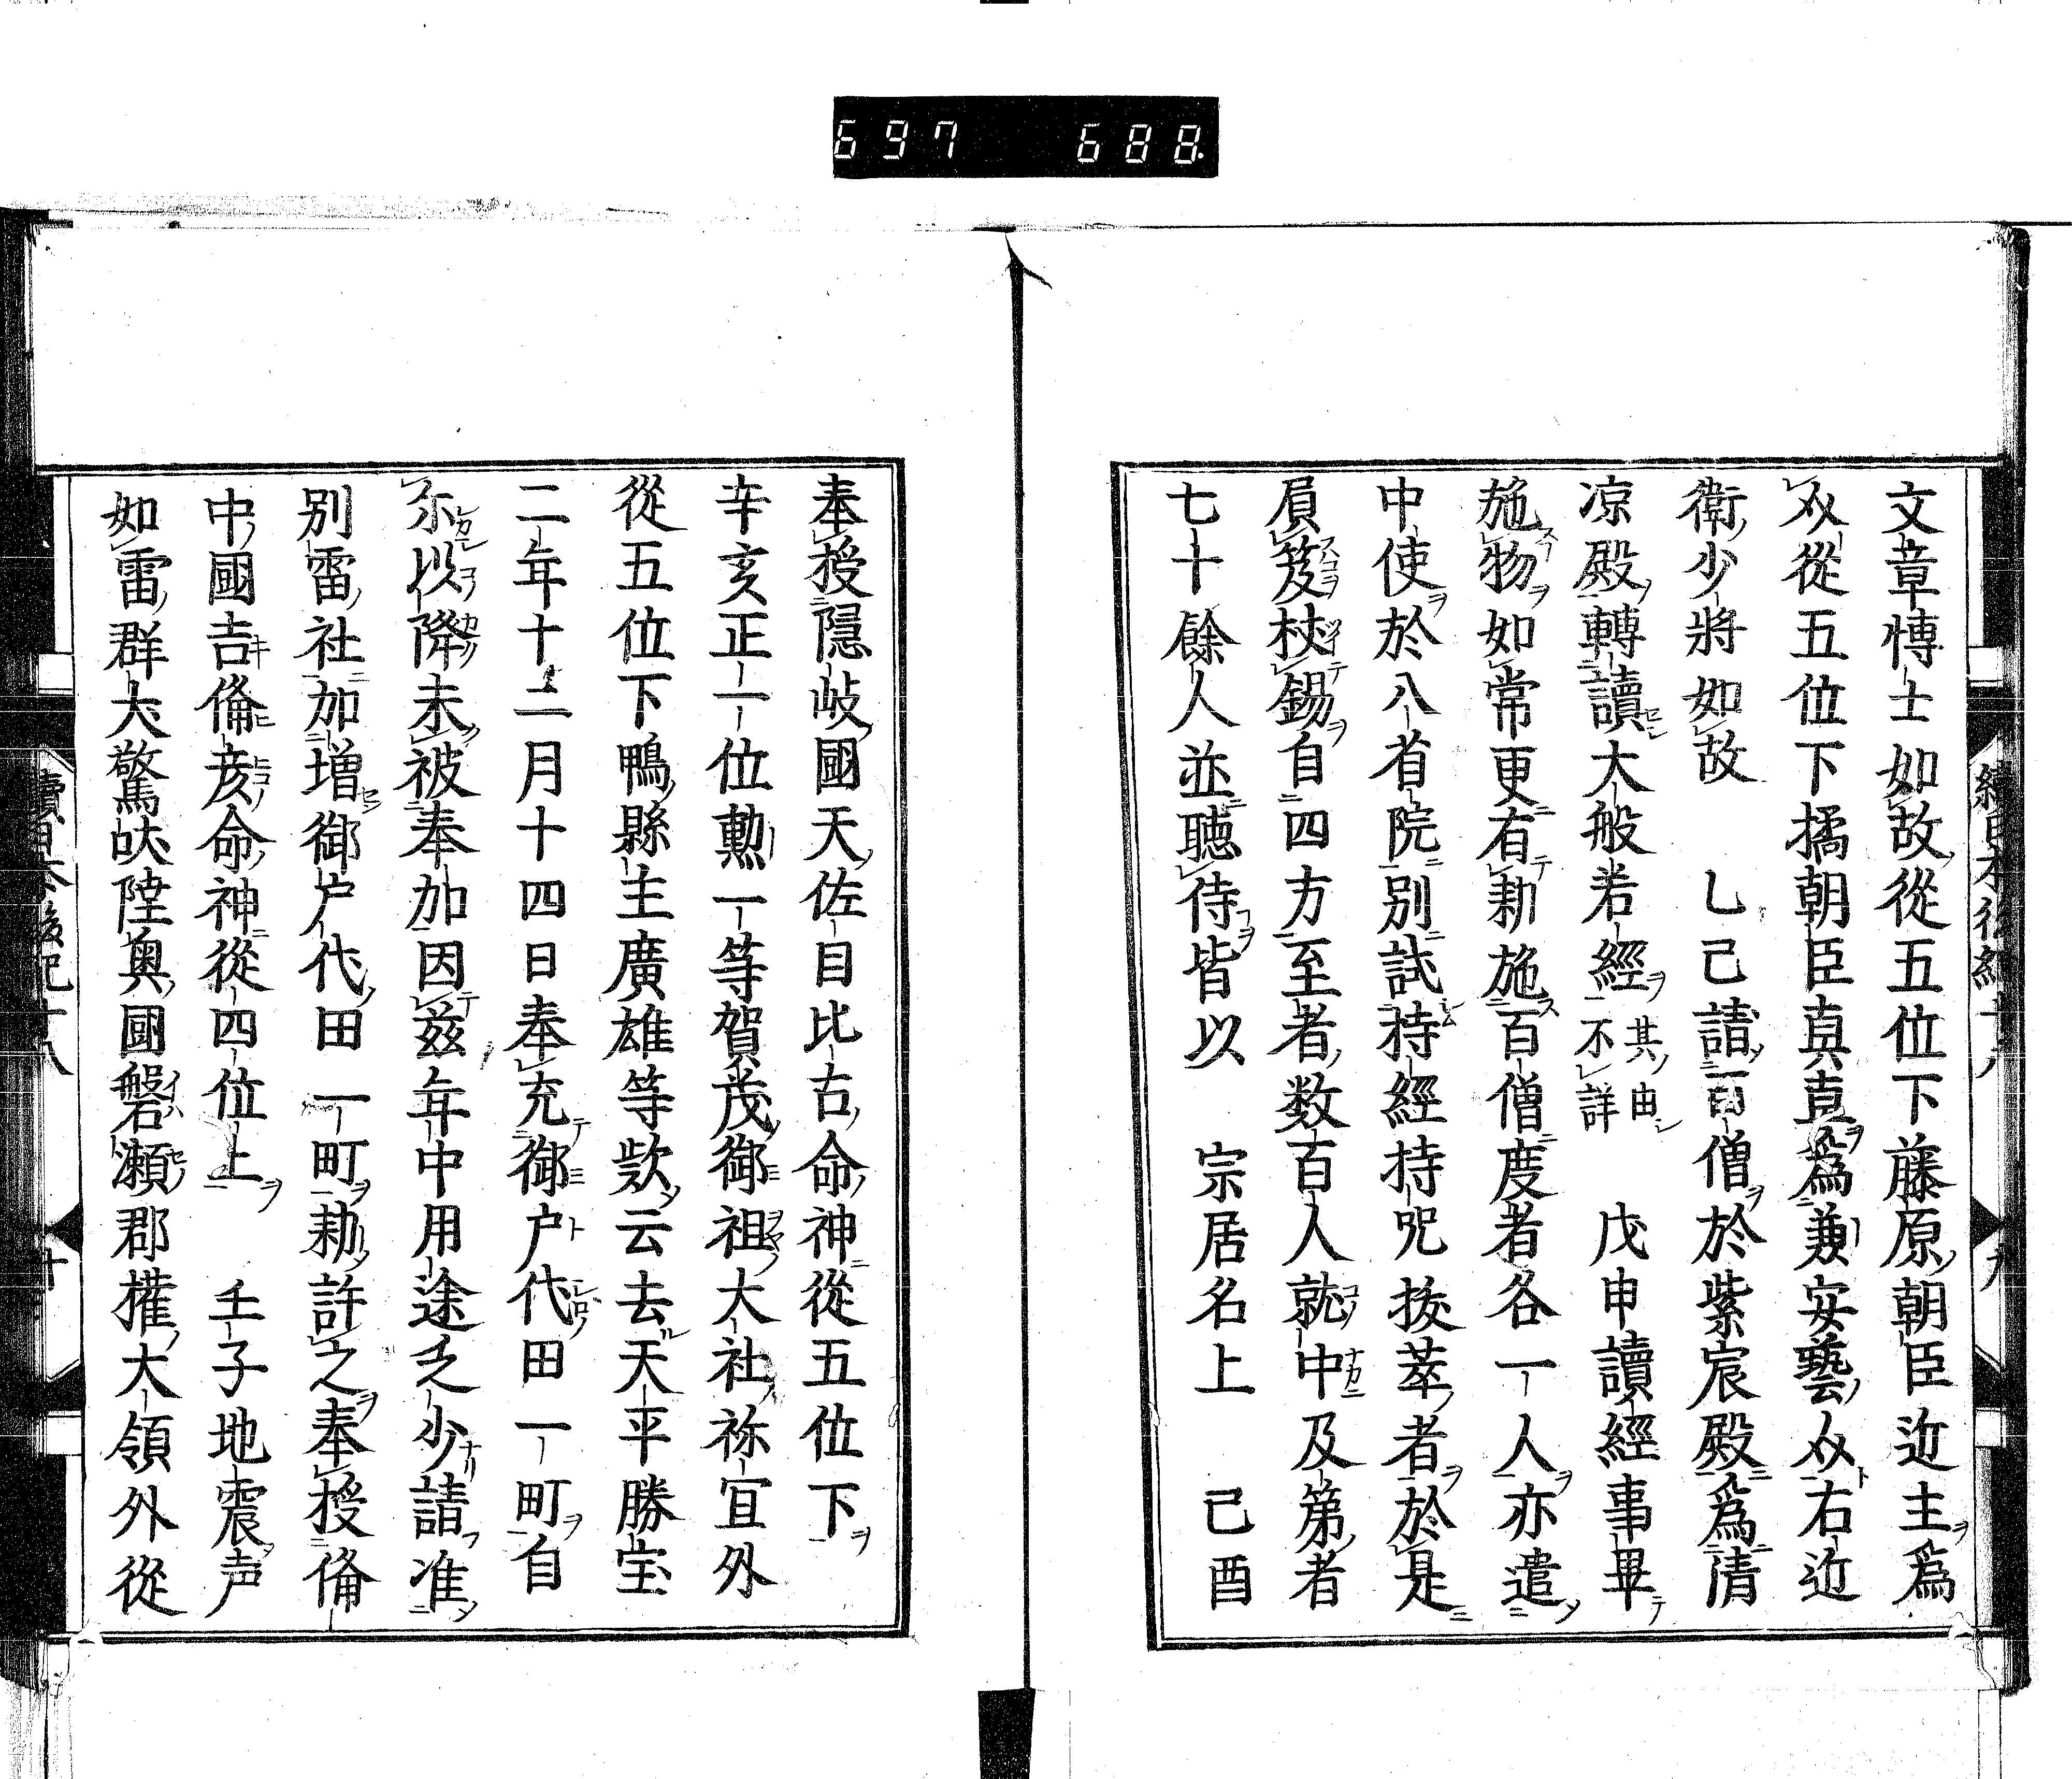 697 688
續日本後紀十八 九
文章博士如故從五位下藤原朝臣近主爲
介從五位下橘朝臣真直爲兼安藝介右近
衛少將如故 乙巳請百僧於紫宸殿爲清
凉殿轉讀大般若經其由不詳 戊申讀經事畢
施物如常更有勅施百僧度者各一人亦遣
中使於八省院別試持經持呪抜萃者於是
屓笈杖錫自四方至者数百人就中及第者
七十餘人並聴侍皆以 宗居名上 己酉
奉授隱岐國天佐自比古命神從五位下
辛亥正一位勲一等賀茂御祖大社祢宜外
從五位下鴨縣主廣雄等欵云去天平勝宝
二年十二月十四日奉充御戸代田一町自
尓以降未被奉加因茲年中用途乏少請准
別雷社加増御戸代田一町勅許之奉授俻
中國吉俻彦命神從四位上 壬子地震声
如雷群犬驚吠陸奥國磐瀬郡權大領外從
續日本後紀十八 十